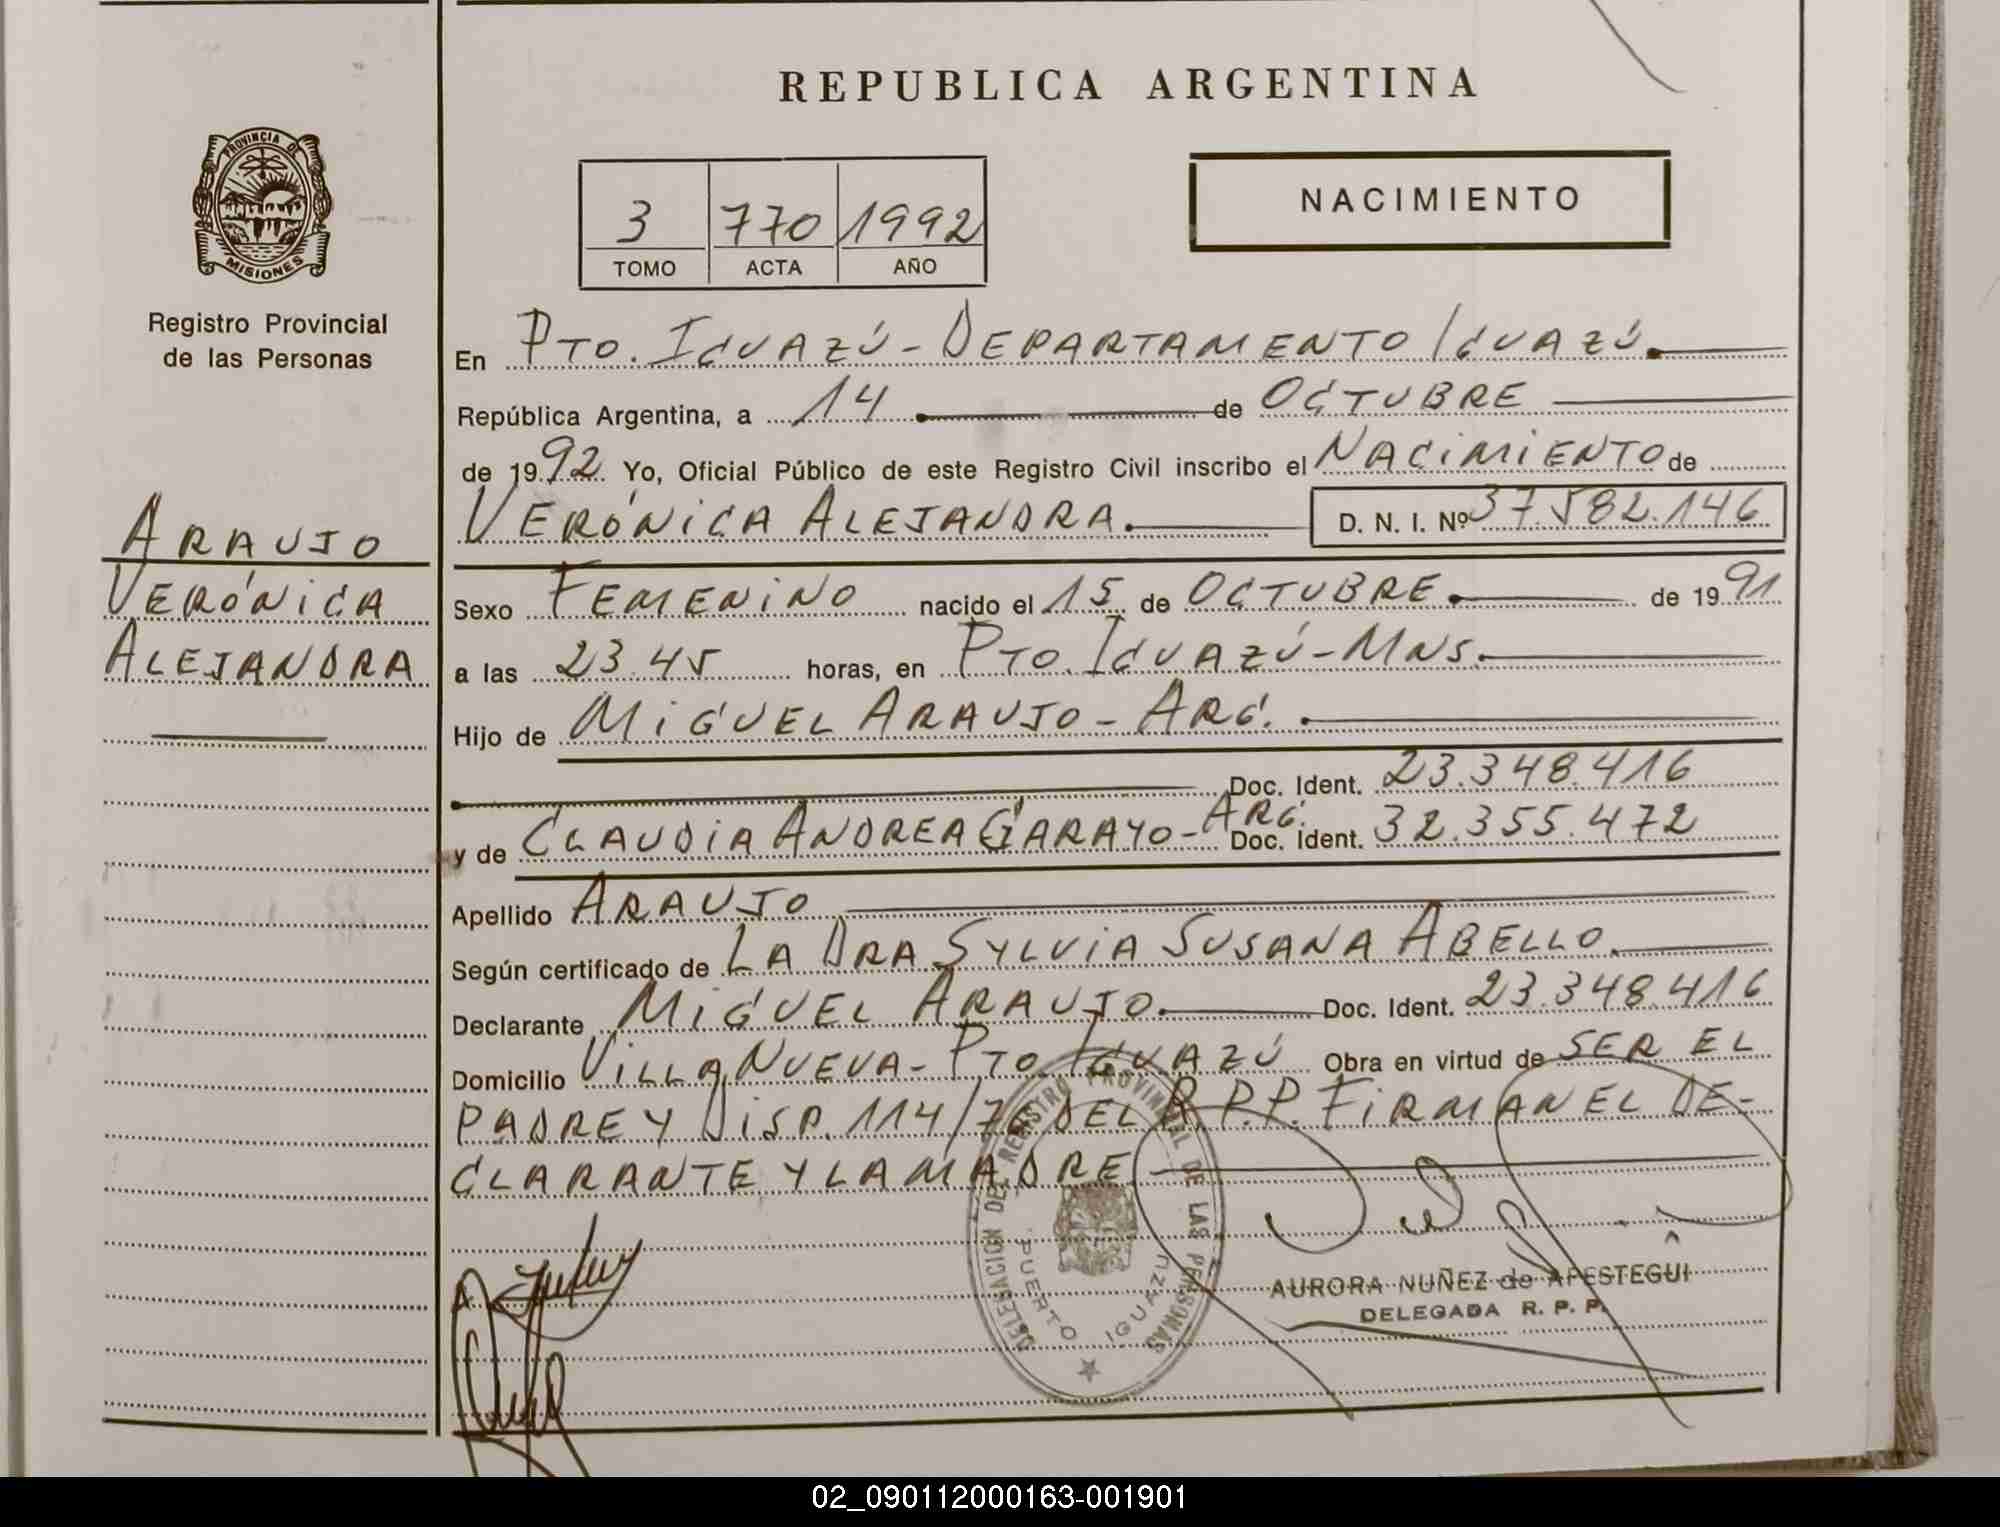 REPUBLICA ARGENTINA
PROVINCIA DE
MISIONES
Registro Provincial
de las Personas
3 770 1992
TOMO ACTA AÑO
NACIMIENTO
En PTO. IGUAZÚ - DEPARTAMENTO IGUAZÚ.
República Argentina, a 14 de OCTUBRE
de 1992 Yo, Oficial Público de este Registro Civil inscribo el NACIMIENTO de
VERÓNICA ALEJANDRA. D. N. I. Nº 37.582.146
ARAUJO
VERÓNICA
ALEJANDRA
Sexo FEMENINO nacido el 15 de OCTUBRE. de 1991
a las 23.45 horas, en PTO. IGUAZÚ - MNS.
Hijo de MIGUEL ARAUJO - ARG.
Doc. Ident. 23.348.416
y de CLAUDIA ANDREA GARAYO - ARG. Doc. Ident. 32.355.472
Apellido ARAUJO
Según certificado de LA DRA SYLVIA SUSANA ABELLO.
Declarante MIGUEL ARAUJO. Doc. Ident. 23.348.416
Domicilio VILLA NUEVA - PTO. IGUAZÚ Obra en virtud de SER EL
PADRE Y DISP. 114/76 DEL R.P.P. FIRMAN EL DE-
CLARANTE Y LA MADRE
DELEGACION DEL REGISTRO PROVINCIAL DE LAS PERSONAS
PUERTO IGUAZU
AURORA NUÑEZ de APESTEGUI
DELEGADA R. P. P.
02_090112000163-001901